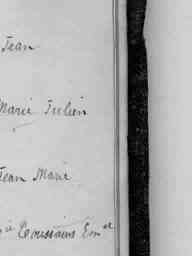 Jean
Marie Julien
Jean Marie
Toussains Em^el